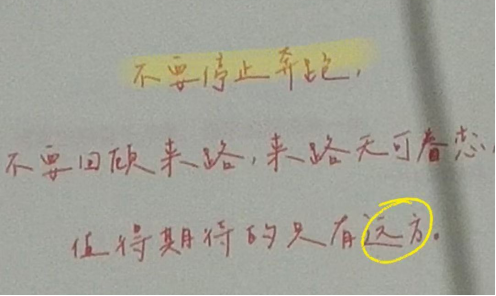 不要停止奔跑，
不要回顾来路，来路无可眷恋，
值得期待的只有远方。